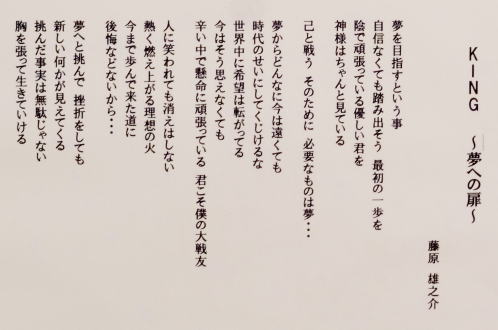 KING ～夢への扉～
藤原 雄之介
夢を目指すという事
自信なくても踏み出そう 最初の一歩を
陰で頑張っている優しい君を
神様はちゃんと見ている
己と戦う そのために 必要なものは夢・・・
夢からどんなに今は遠くても
時代のせいにしてくじけるな
世界中に希望は転がってる
今はそう思えなくても
辛い中で懸命に頑張っている 君こそ僕の大戦友
人に笑われても消えはしない
熱く燃え上がる理想の火
今まで歩んで来た道に
後悔などないから・・・
夢へと挑んで 挫折をしても
新しい何かが見えてくる
挑んだ事実は無駄じゃない
胸を張って生きていける